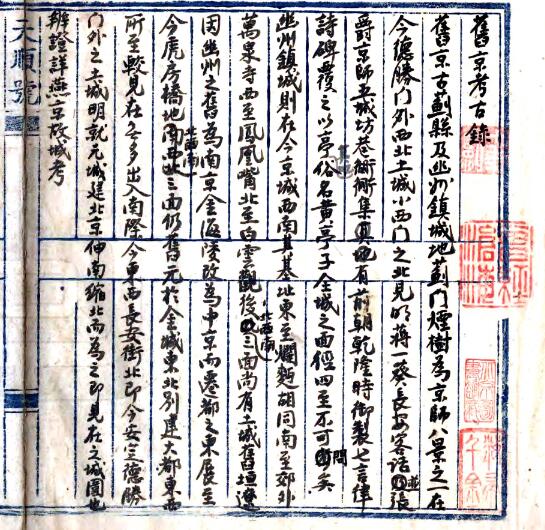 舊京考古錄
舊京古薊縣及幽州鎮城地薊門煙樹為京師八景之一在
今德勝門外西北土城小西門之北見明蔣一葵長安客話並張
爵京師五城坊巷衚衕集其地有前朝乾隆時御製七言律
詩碑覆之以亭俗名黃亭子全城之面徑四至不可問矣
幽州鎮城則在今京城西南其基址東至爛麵胡同南至郊外
萬泉寺西至鳳凰嘴北至白雲觀後北西南三面尚有土城舊垣遼
因幽州之舊為南京金海陵改為中京而遷都之東展至
今虎房橋地北西南三面仍舊元於金城東北別建大都東西
所至較見在無多出入南際今東西長安街北即今安定德勝
門外之土城明就元城建北京伸南縮北而為之即見在之城圍也
辨證詳燕京故城考
天順號